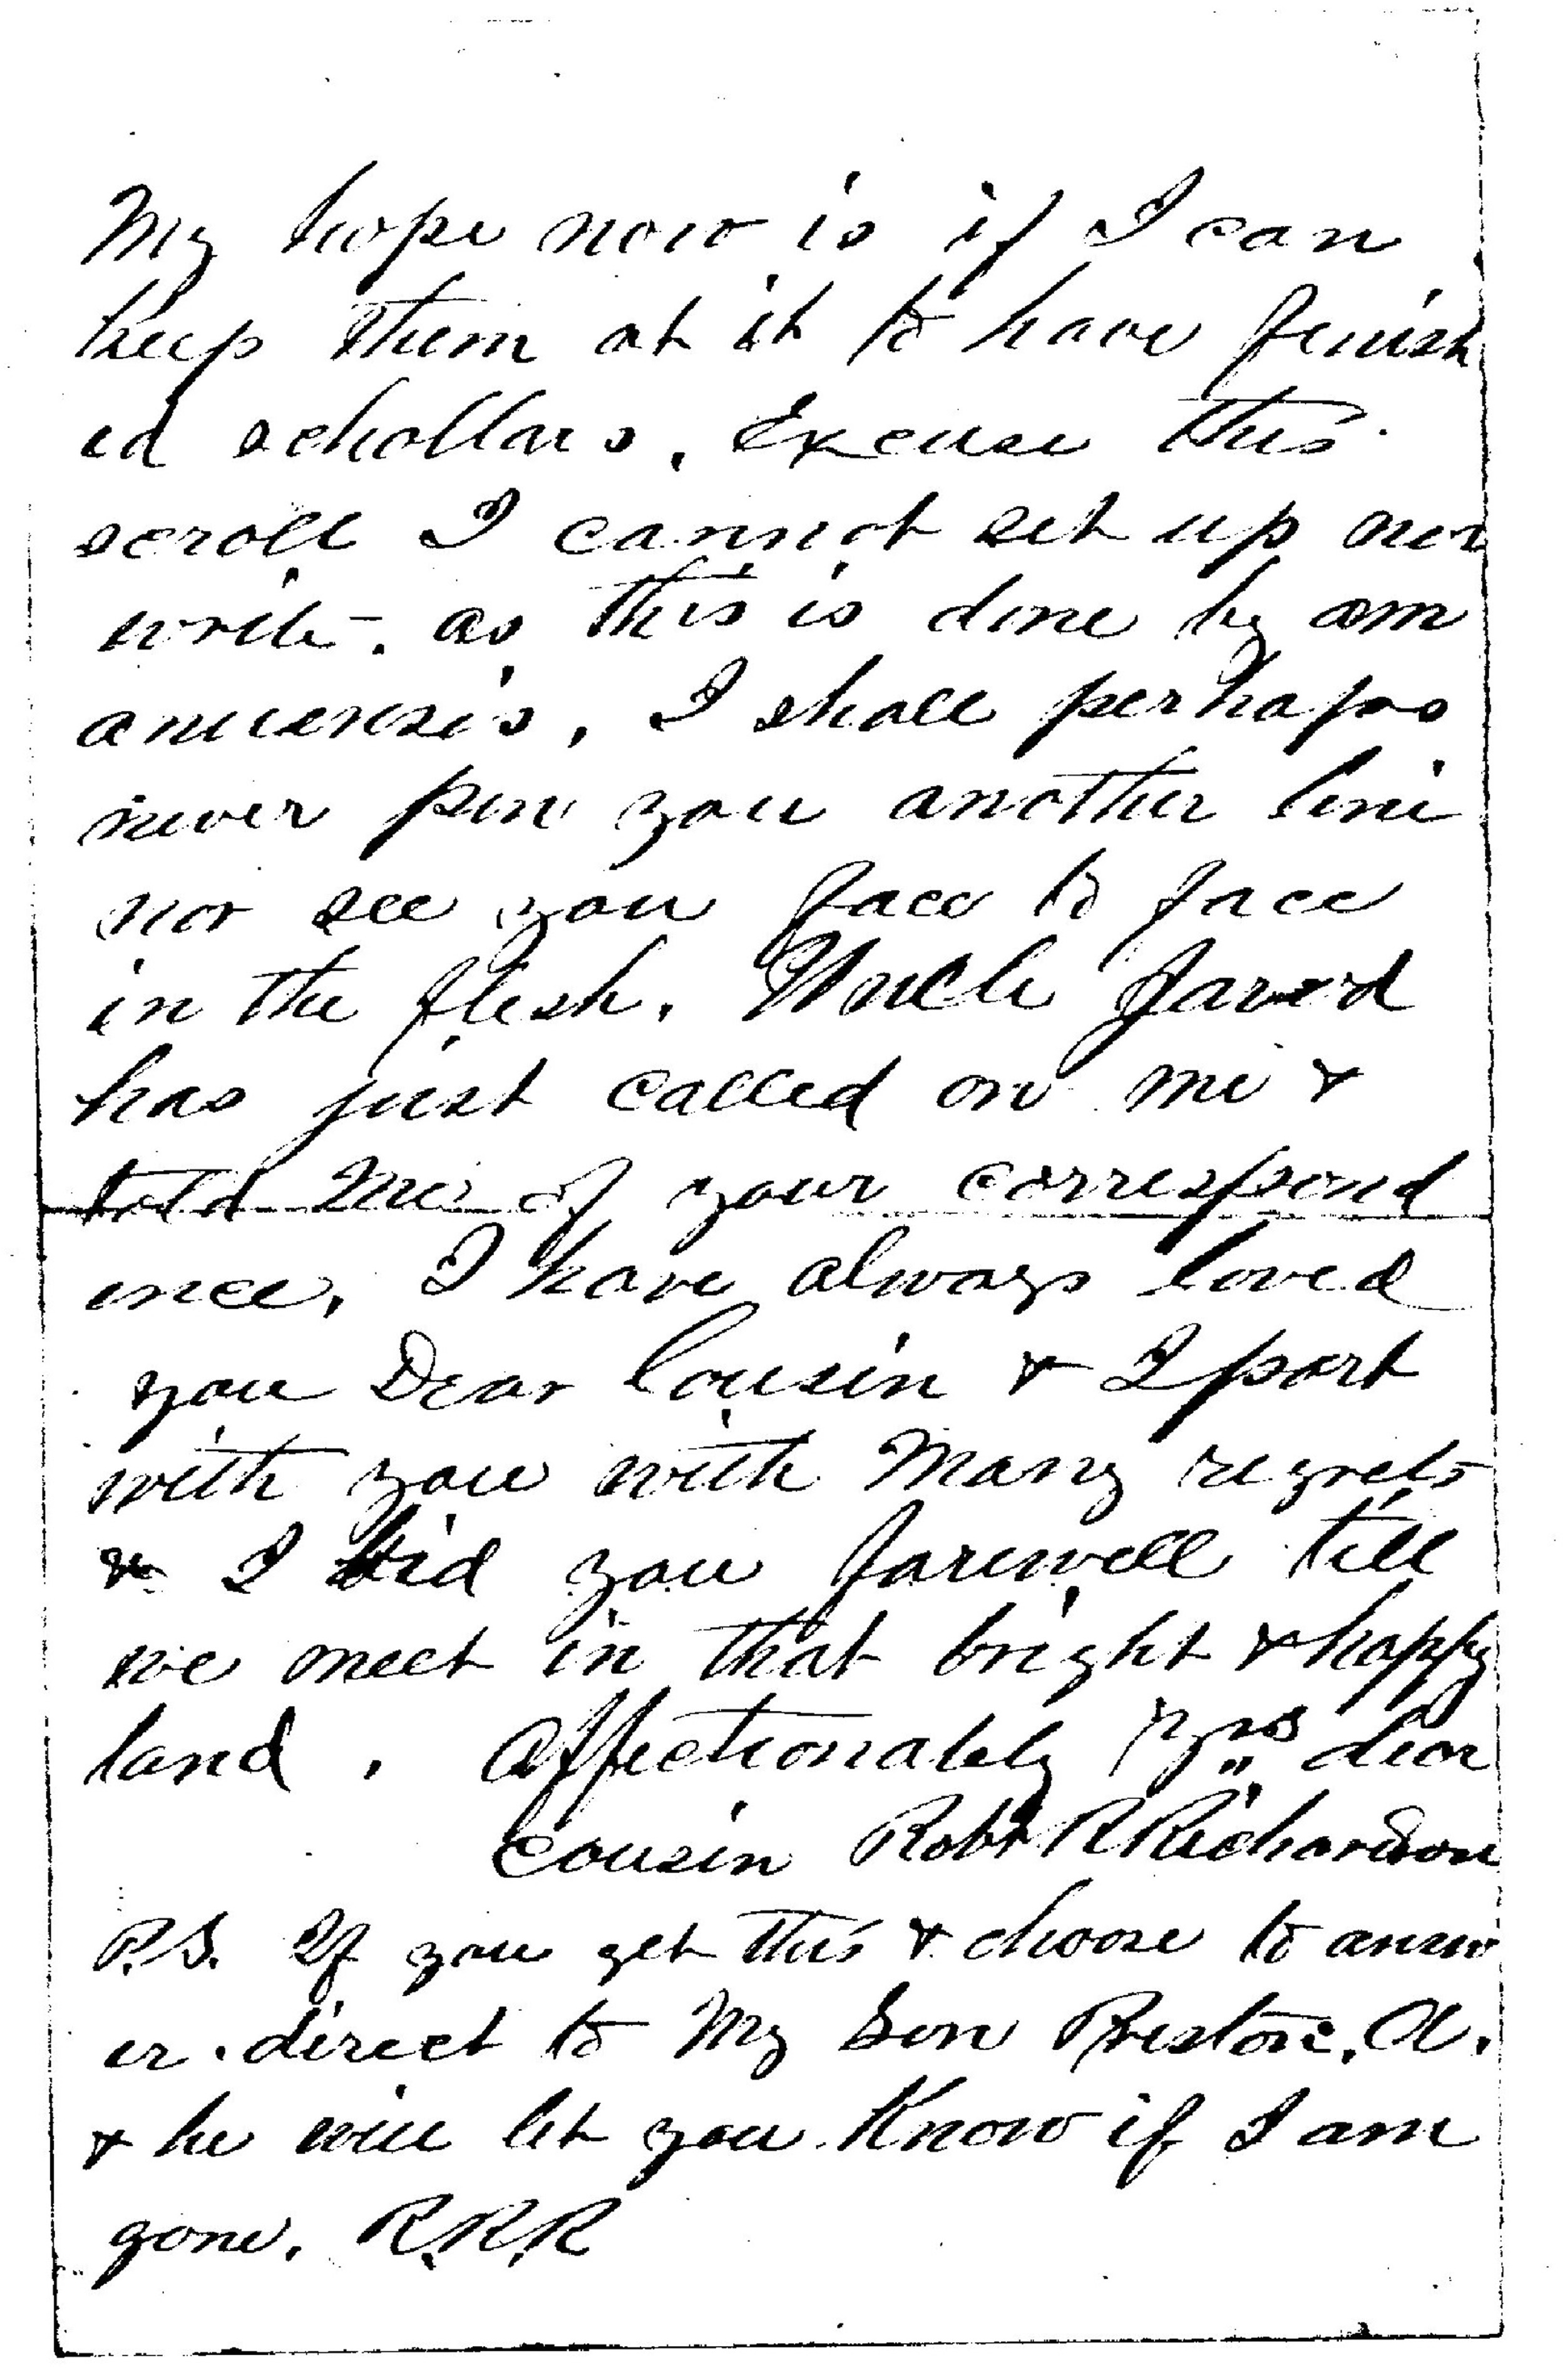 My hope now is if I can
keep them at it to have finish
ed schollars. Excuse this
scroll I cannot set up nor
write. as this is done by am
anuensis, I shall perhaps
never pen you another line
nor see you face to face
in the flesh. Uncle Jared
has just called on me &
told me of your correspond
ence, I have always loved
you Dear Cousin & I part
with you with many regrets
& I bid you farewell till
we meet in that bright & happy
land. Affectionately yrs dear
cousin Robt R Richardson
P.S. If you get this & choose to answ
er. direct to My Son Preston. A.
& he will let you Know if I am
gone. R.R.R